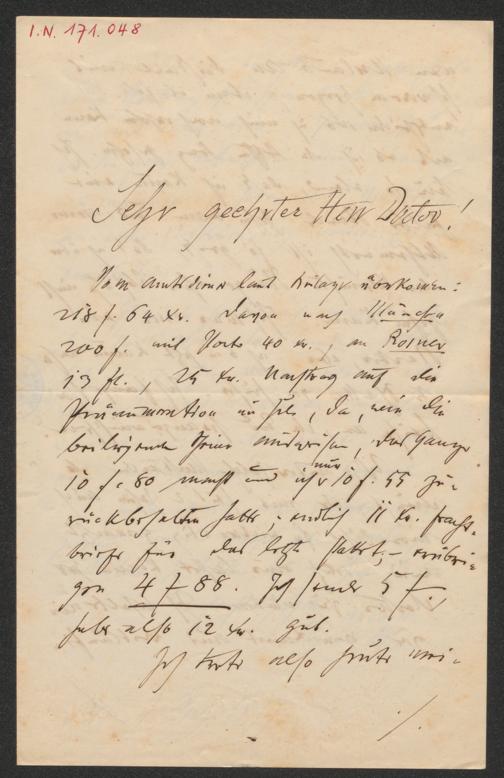 I.N. 171.048
Sehr geehrter Herr Doctor!
Vom Amtsdiener laut Beilage übernommen:
218 f. 64 kr. Davon nach München
200 f. mit Porto 40 kr., an Rosner
13 fl., 25 kr. Nachtrag auf die
Pränumeration im Hefe, da, wie die
beiliegenden Scheine ausweisen, das Ganze
10 f. 80 macht und ich nur 10 f. 55 zu-
rückbehalten hatte; endlich 11 kr. Fracht-
briefe für das letzte Packet, – erübri-
gen 4 f 88. Ich sende 5 f.,
habe also 12 kr. gut.
Ich trete also heute mei-
./.